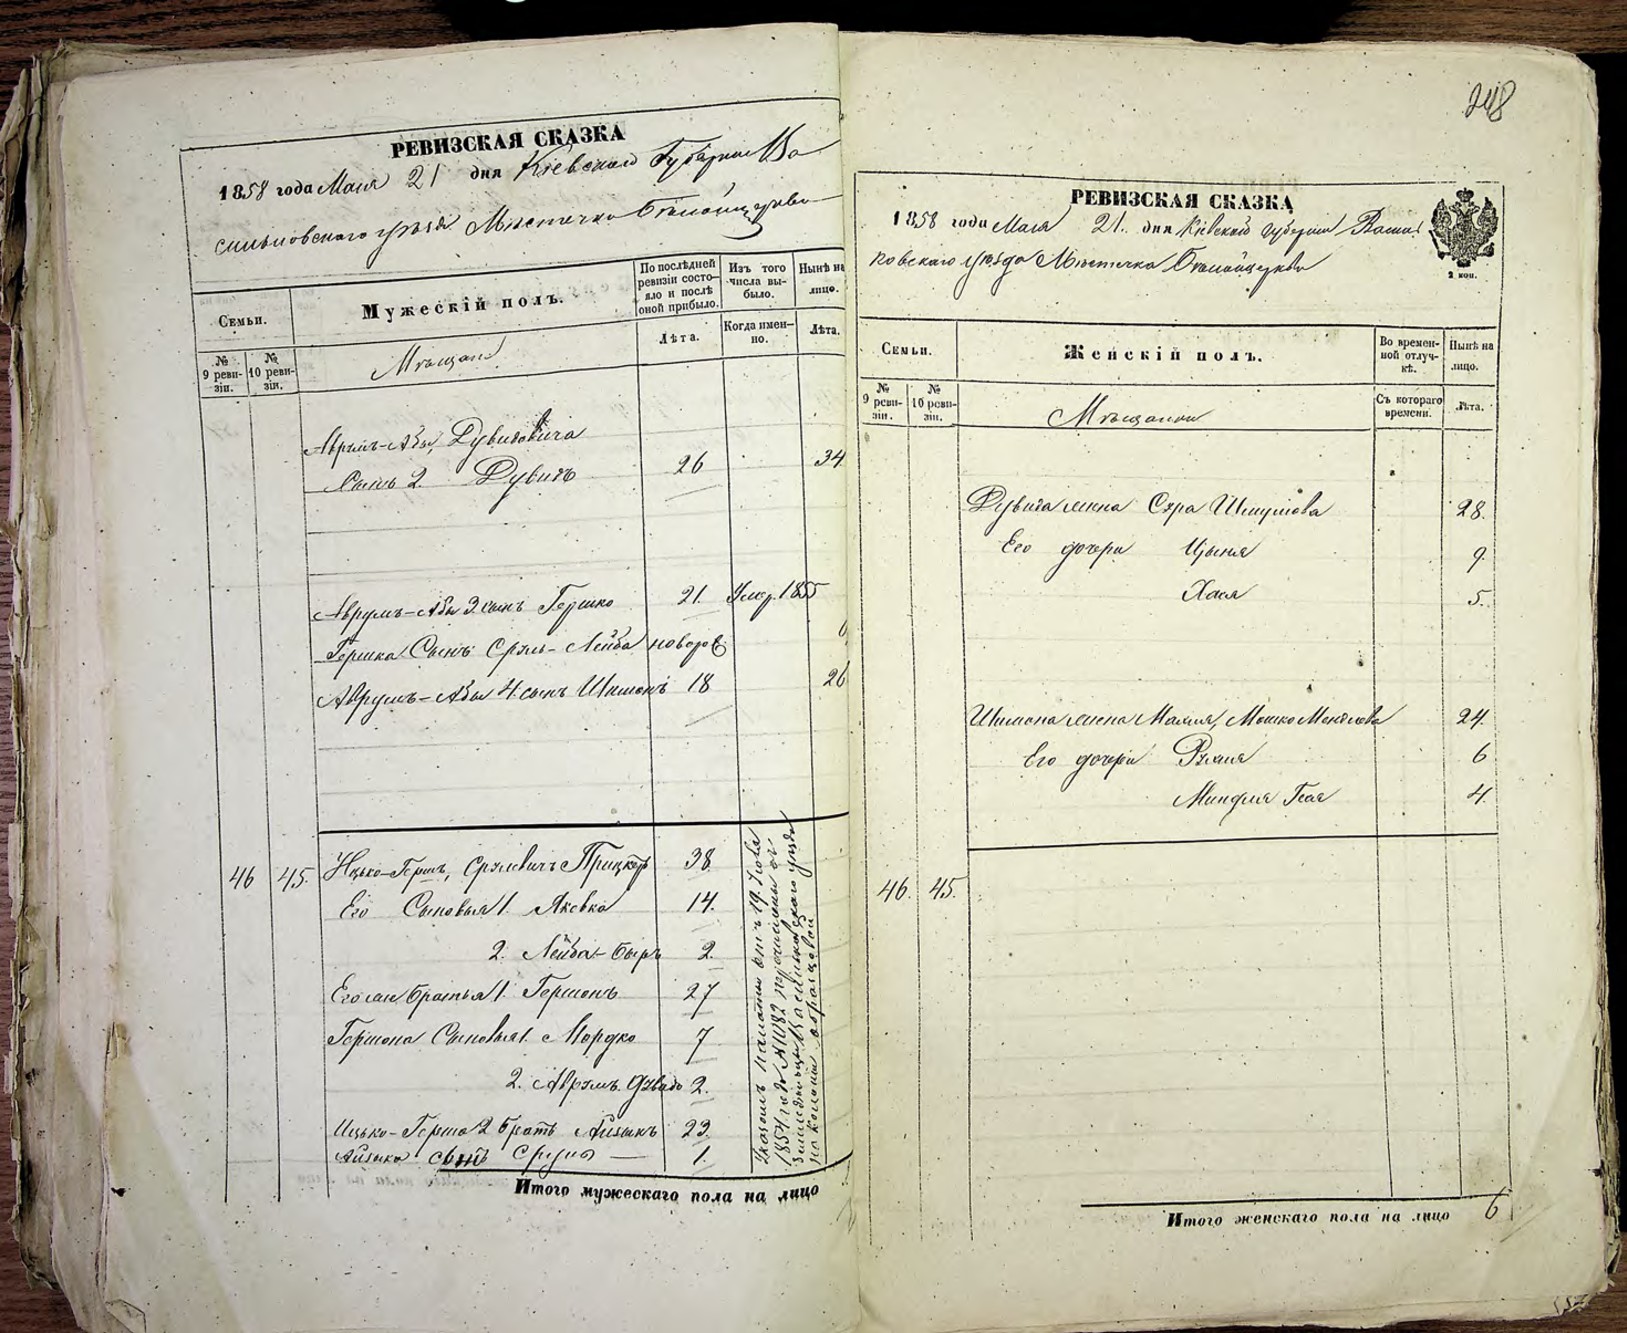 РЕВИЗСКАЯ СКАЗКА
1858 года Мая 21 дня Кіевской Губерніи Ва
сильковскаго уѣзда Мѣстечка Бѣлойцеркви
Семьи.
Мужескій полъ.
По послѣдней ревизіи состояло и послѣ оной прибыло.
Изъ того числа выбыло.
Нынѣ на лицо.
№ 9 ревизіи.
№ 10 ревизіи.
Мѣщане
Лѣта.
Когда именно.
Лѣта.
Аврумъ-Абы Дувидовича
Сынъ 2. Дувидъ 26 34
Аврумъ-Абы 3 сынъ Гершко 21. Умер. 1855
Гершка Сынъ Сруль-Лейба новорож
Аврумъ-Абы 4 сынъ Шимонъ 18 26
46 45. Ицько-Гершъ, Срулевичъ 38
Его Сыновья 1. Яковка 14.
2. Лейба-Беръ 2.
Его же братья 1. Гершонъ 27
Гершона Сыновья 1. Мордко 7
2. Аврумъ 2.
Ицько-Герша 2 братъ Айзыкъ 23.
Айзыка сынъ Сруль 1.
Указомъ палаты отъ 19. Іюля
1854 года № 11082 перечислены въ
земледѣльцы Васильковскаго уѣзда
на колонію образцовой
Итого мужескаго пола на лицо
248
РЕВИЗСКАЯ СКАЗКА
1858 года Мая 21. дня Кіевской губерніи Васильковскаго уѣзда Мѣстечка Бѣлойцеркви
2 коп.
Семьи.
Женскій полъ.
Во временной отлучкѣ.
Нынѣ на лицо.
№ 9 ревизіи.
№ 10 ревизіи.
Мѣщанки
Съ котораго времени.
Лѣта.
Дувида жена Сура Шмулова 28.
Его дочери Цыня 9.
Хая 5.
Шимона жена Малия, Мошко Менделева 24.
Его дочери Рухля 6
Миндля Гея 4.
46. 45.
Итого женскаго пола на лицо 6